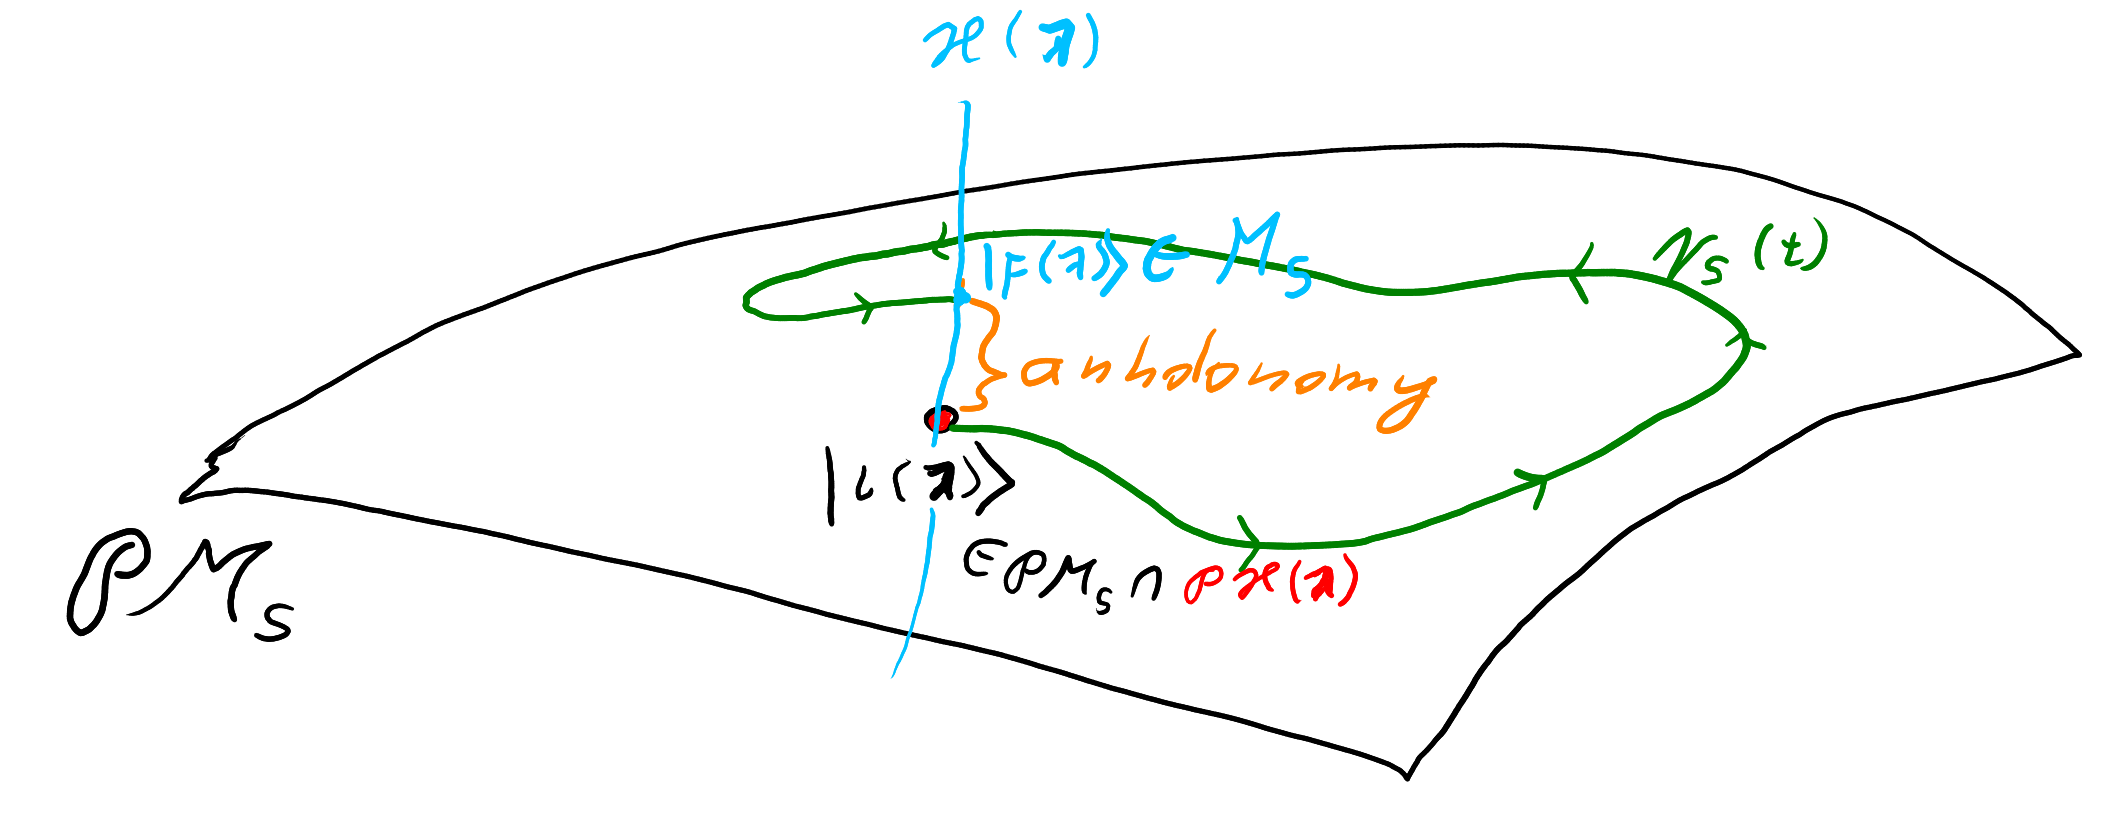 ℋ(λ)
|F(λ)⟩⟩ ∈ M_S
γ_S(t)
anholonomy
|ι(λ)⟩⟩
∈ 𝒫M_S ∩ 𝒫ℋ(λ)
𝒫M_S